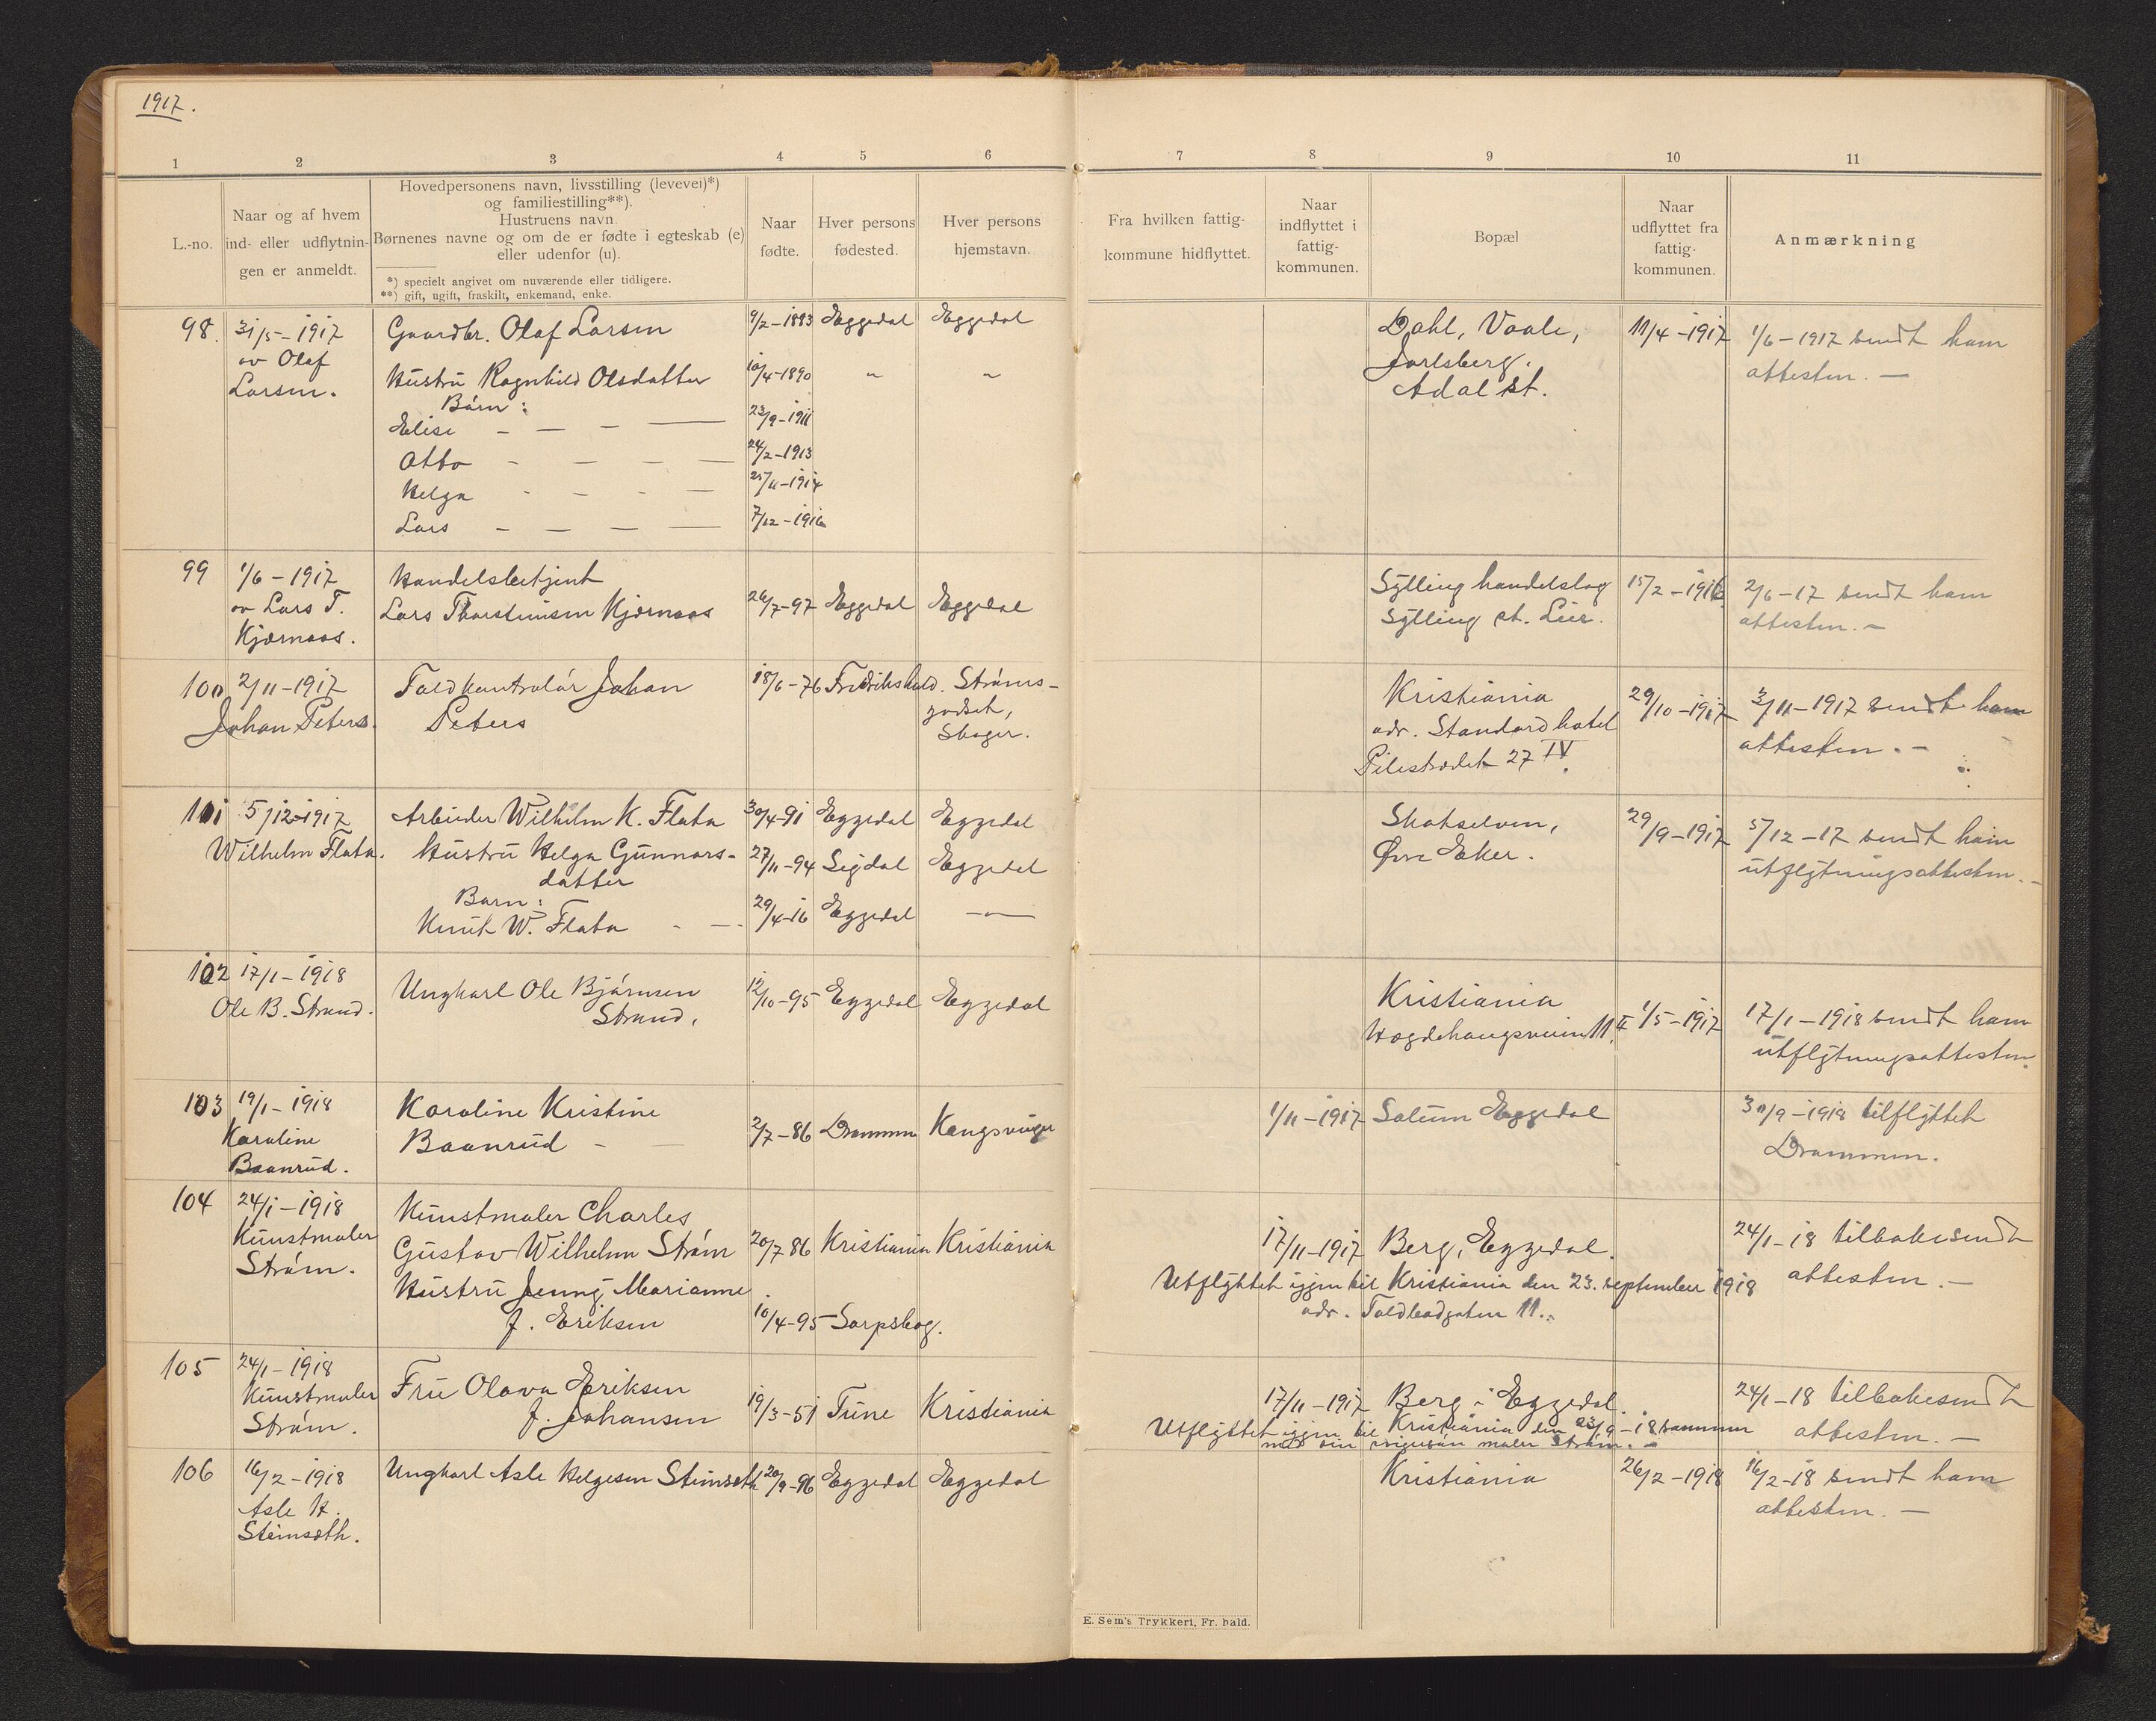 1917.
1 2 3 4 5 6 7 8 9 10 11
L.-no.
Naar og af hvem
ind- eller udflytnin-
gen er anmeldt.
Hovedpersonens navn, livsstilling (levevei)*)
og familiestilling**).
Hustruens navn.
Børnenes navne og om de er fødte i egteskab (e)
eller udenfor (u).
*) specielt angivet om nuværende eller tidligere.
**) gift, ugift, fraskilt, enkemand, enke.
Naar
fødte.
Hver persons
fødested.
Hver persons
hjemstavn.
Fra hvilken fattig-
kommune hidflyttet.
Naar
indflyttet i
fattig-
kommunen.
Bopæl
Naar
udflyttet fra
fattig-
kommunen.
Anmærkning
98. 31/5-1917 Gaardbr. Olaf Larsen 9/2-1883 Eggedal Eggedal Dahl, Vaale, 11/4-1917 1/6-1917 sendt ham
av Olaf Jarlsberg. attesten. —
Larsen. Hustru Ragnhild Olsdatter 10/4-1890 " " Adal st.
Børn:
Elise - — - — 23/9-1911
Otto - — - — 24/2-1913
Helga - - - — 25/11-1914
Lars — — — — 7/12-1916
99 1/6-1917 Handelsbetjent Sylling handelslag 15/2-1916 2/6-17 sendt ham
av Lars T. Lars Thorsteinsen Kjørnaas 26/7-97 Eggedal Eggedal Sylling st. Lier. attesten. —
Kjørnaas.
100 2/11-1917 Toldkontrolør Johan 18/6-76 Fredrikshald. Strøms- Kristiania 29/10-1917 3/11-1917 sendt ham
Johan Peters. Peters godset, adr. Standard hotel attesten. —
Skoger. Pilestrædet 27 IV.
101 5/12-1917 Arbeider Wilhelm K. Flata 30/4-91 Eggedal Eggedal Skotselven, 29/9-1917 5/12-17 sendt ham
Wilhelm Flata. Hustru Helga Gunnars- 27/11-94 Sigdal Eggedal Øvre Eker. utflytningsattesten. —
datter
Barn:
Knut W. Flata - — 29/4-16 Eggedal —"—
102 17/1-1918 Ungkarl Ole Bjørnsen 12/10-95 Eggedal Eggedal Kristiania 1/5-1917 17/1-1918 sendt ham
Ole B. Strand. Strand. 11. utflytningsattesten.
103 19/1-1918 Karoline Kristine 2/7-86 Drammen Kongsvinger 1/11-1917 Solum Eggedal 30/9-1918 tilflyttet
Karoline Baanrud - Drammen.
Baanrud.
104 24/1-1918 Kunstmaler Charles
Kunstmaler Gustav Wilhelm Strøm 20/7 86 Kristiania Kristiania 17/11-1917 Berg, Eggedal. 24/1-18 tilbakesendt
Strøm. Hustru Jenny Marianne Utflyttet igjen til Kristiania den 23. september 1918 attesten. —
f. Eriksen 10/4-95 Sarpsbog. adr. Toldbodgaten 11.
105 24/1-1918 Fru Olava Eriksen 19/3-51 Tune Kristiania 17/11-1917 Berg i Eggedal. 24/1-18 tilbakesendt
Kunstmaler f. Johansen Utflyttet igjen til Kristiania den 23/9-18 sammen attesten. —
Strøm. med sin svigersøn maler Strøm. —
106 16/2-1918 Ungkarl Asle Helgesen Steinseth 20/9-96 Eggedal Eggedal Kristiania 26/2-1918 16/2-18 sendt ham
Asle H. attesten. —
Steinseth.
E. Sem's Trykkeri, Fr. hald.